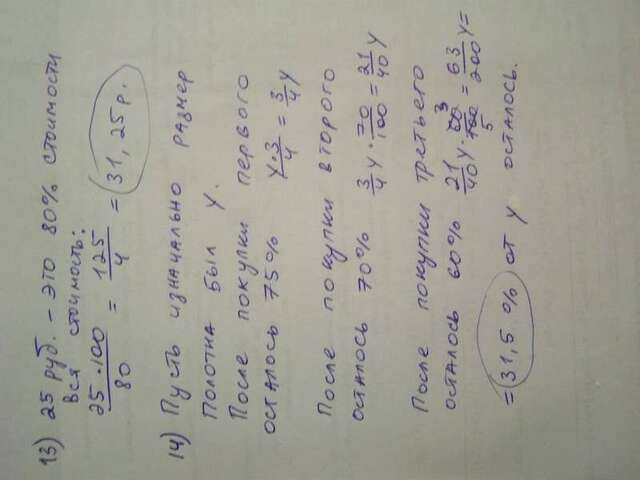 13) 25 руб. - это 80% стоимости
Вся стоимость:
25·100/80 = 125/4 = 31,25р.
14) Пусть изначально размер
Полотна был y.
После покупки первого
осталось 75% y·3/4 = 3/4 y
После покупки второго
осталось 70% 3/4 y · 70/100 = 21/40 y
После покупки третьего
осталось 60% 21/40 y · 60 3/100 5 = 63/200 y =
= 31,5% от y осталось.